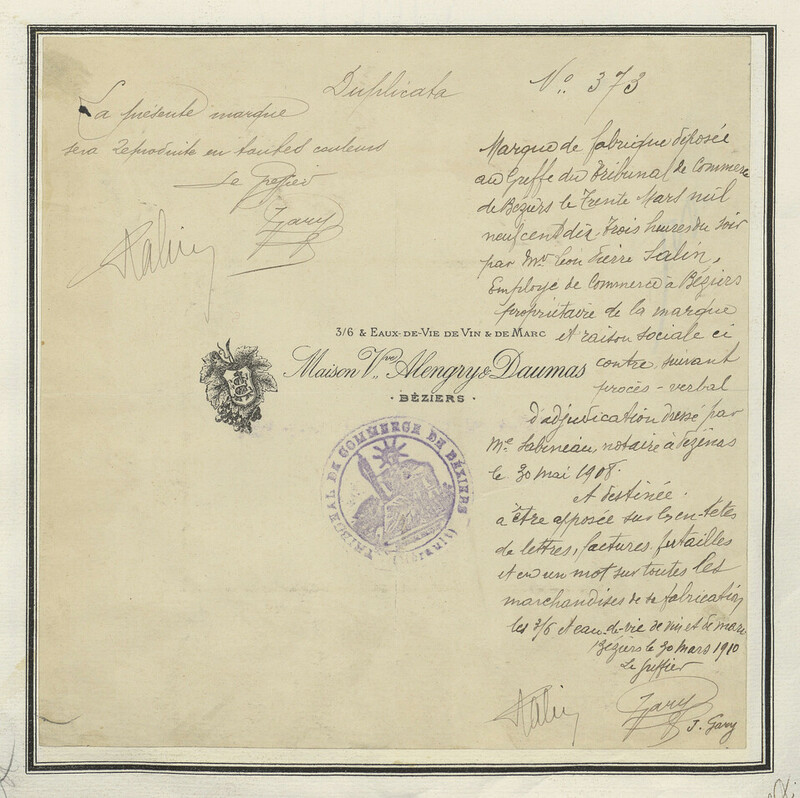 Duplicata
N° 373
La présente marque
sera reproduite en toutes couleurs
Le Greffier
Gary
Marque de fabrique déposée
au Greffe du Tribunal de Commerce
de Béziers le Trente Mars mil
neuf cent dix Trois heures du soir
par Mr Léon Pierre Salin,
Employé de Commerce à Béziers
propriétaire de la marque
et raison sociale ci
contre, suivant
procès-verbal
d'adjudication dressé par
Me Sabineau, notaire à Pézénas
le 30 mai 1908.
Et destinée
à être apposée sur les en-têtes
de lettres, factures, futailles
et en un mot sur toutes les
marchandises de sa fabrication
les 3/6 et eau-de-vie de vin et de marc
Béziers le 30 mars 1910
Le Greffier
Salin
Gary
J. Gary
3/6 & EAUX-DE-VIE DE VIN & DE MARC
Maison Vve Alengry & Daumas
· BÉZIERS ·
TRIBUNAL DE COMMERCE DE BÉZIERS
(Hérault)